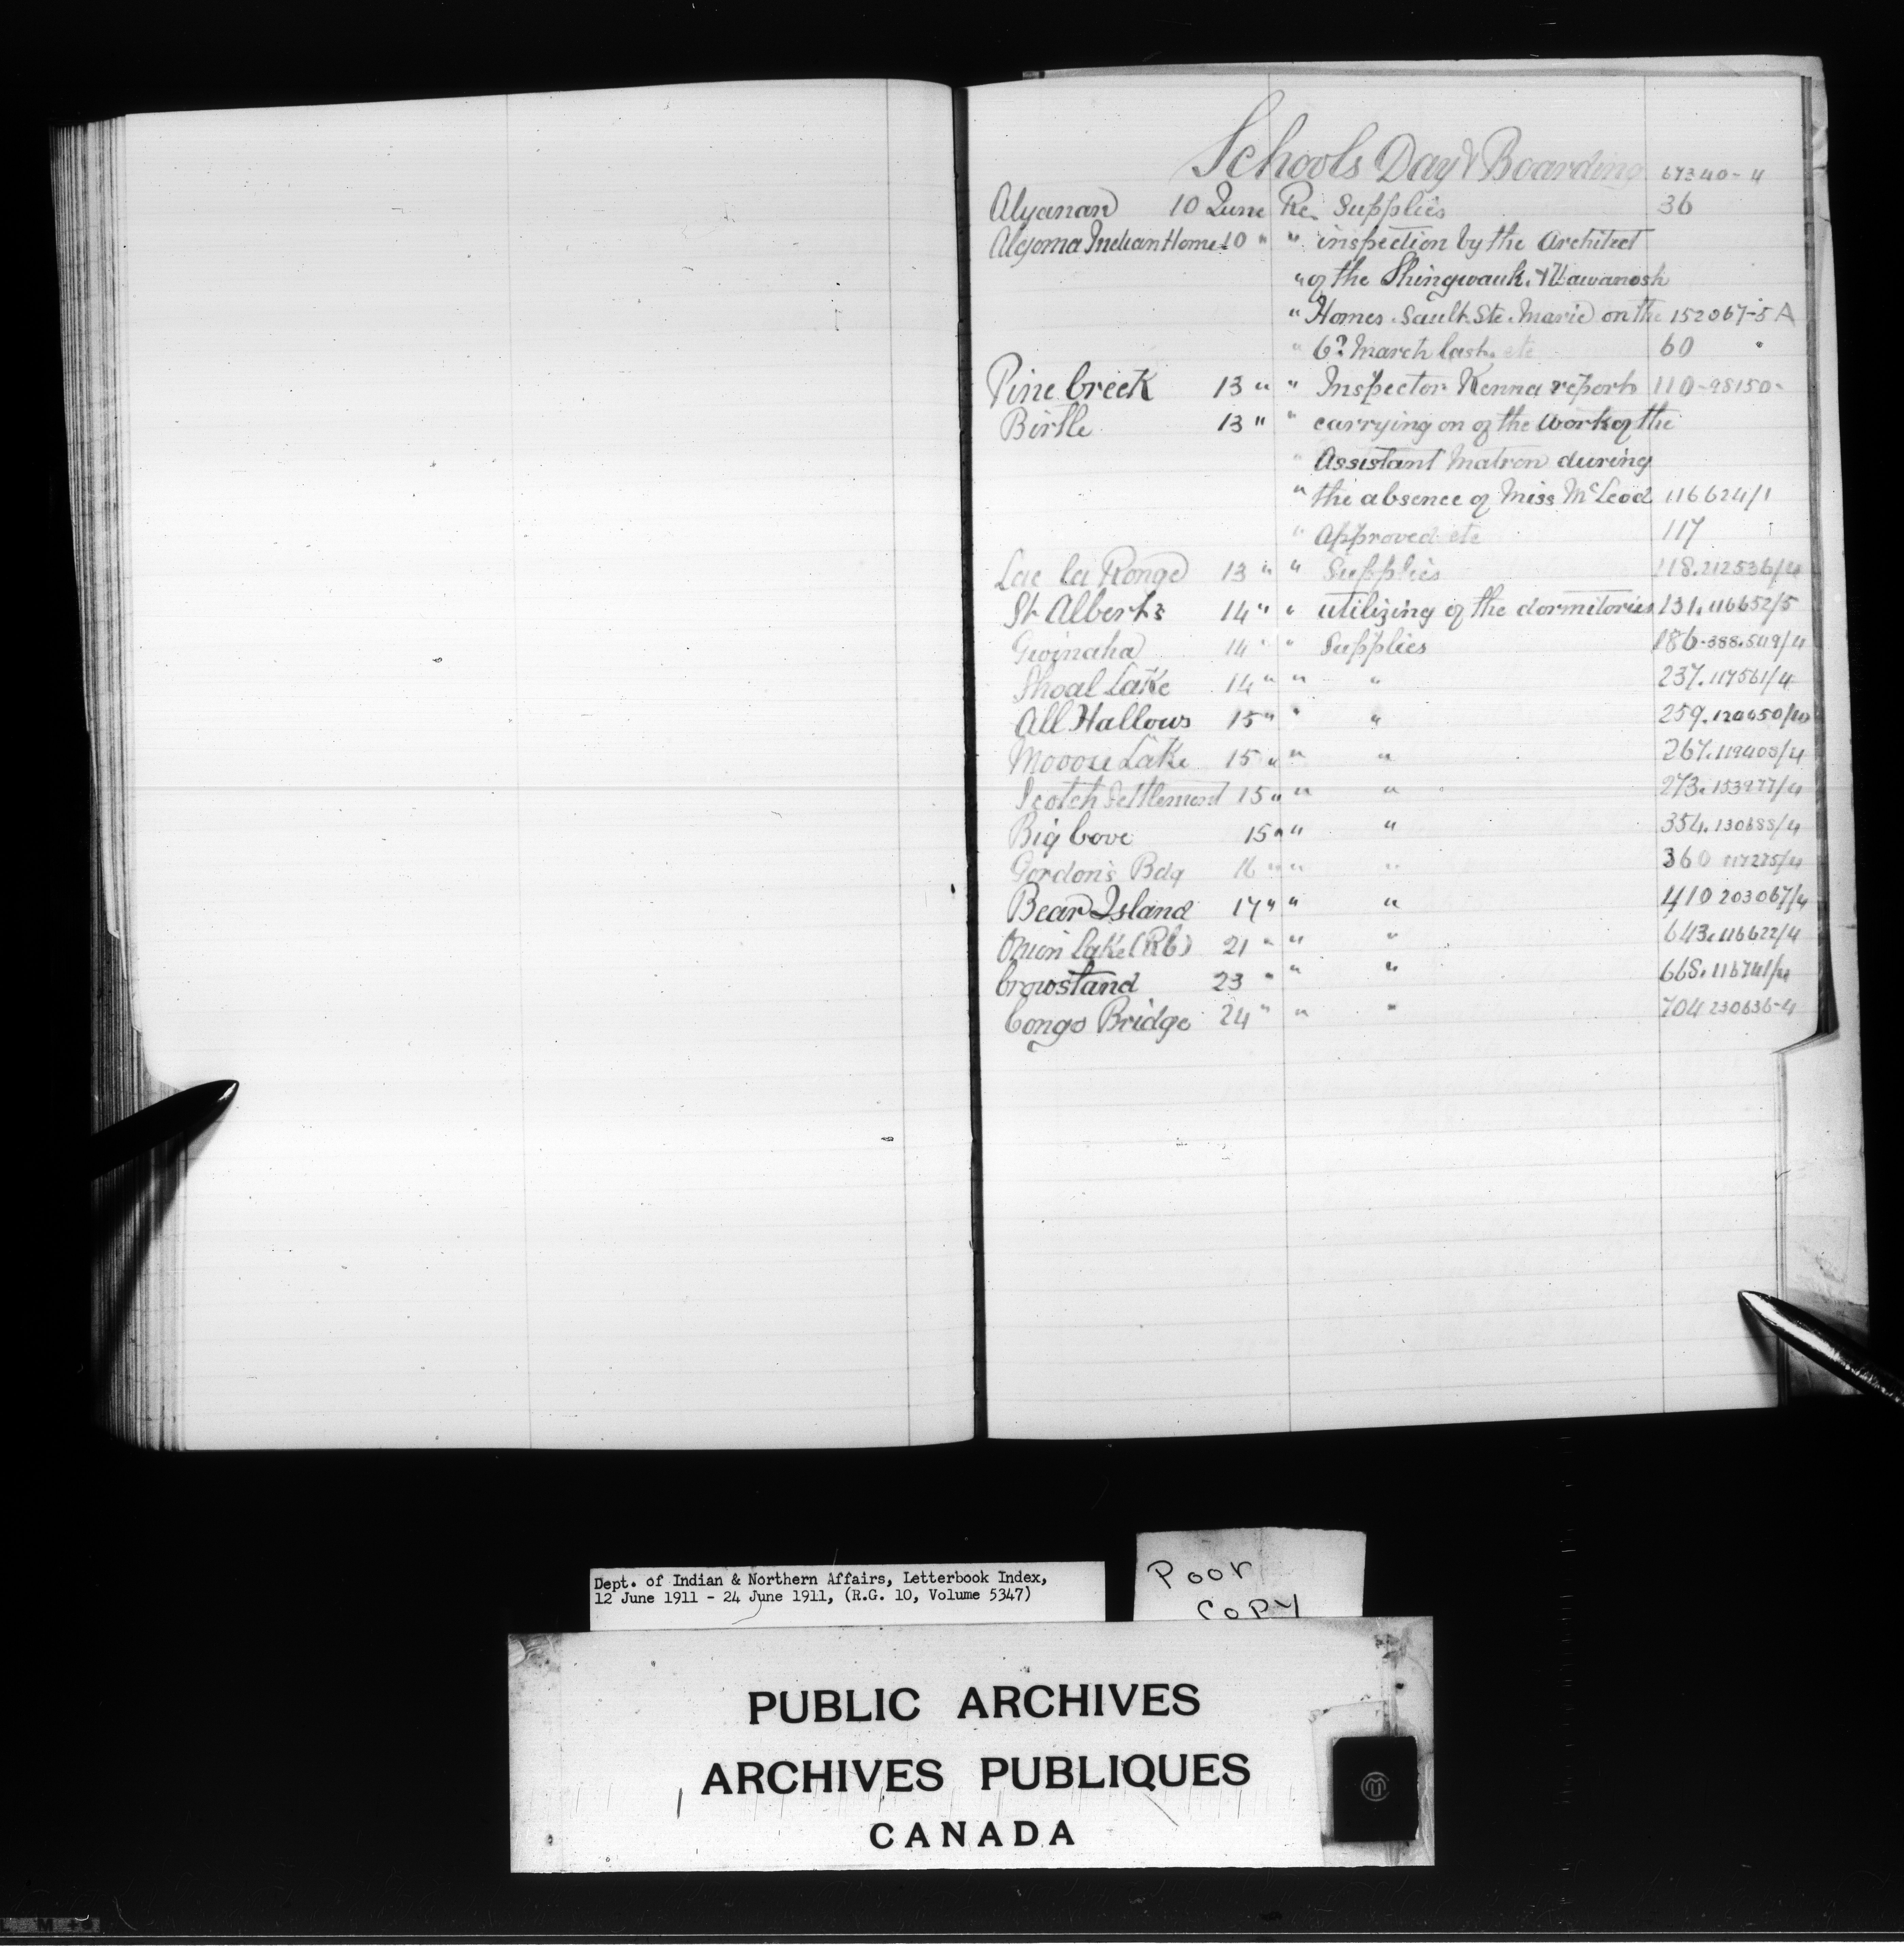 Schools Day & Boarding 67340-4
Alyanan 10 June Re Supplies 36
Algoma Indian Home 10 " " inspection by the Architect
" of the Shingwauk & Wawanosh
" Homes Sault Ste. Marie on the 152067-5A
" 6th March last. etc 60 "
Pine Creek 13 " " Inspector Kenna report 110-98150-
Birtle 13 " " carrying on of the work of the
" Assistant Matron during
" the absence of Miss McLeod 116624/1
" Approved etc 117
Lac la Ronge 13 " " Supplies 118.212536/4
St Alberts 14 " " utilizing of the dormitories 131.116652/5
Gwinaha 14 " " Supplies 186-388.549/4
Shoal Lake 14 " " " 237.117561/4
All Hallows 15 " " " 259.120650/10
Mooose Lake 15 " " " 267.119408/4
Scotch Settlement 15 " " " 273.153977/4
Big Cove 15 " " " 354.130688/4
Gordon's Bdg 16 " " " 360 117275/4
Bear Island 17 " " " 410 203067/4
Onion Lake (RC) 21 " " " 643.116622/4
Crowstand 23 " " " 668.116741/4
Congo Bridge 24 " " " 704 230636-4
Dept. of Indian & Northern Affairs, Letterbook Index,
12 June 1911 - 24 June 1911, (R.G. 10, Volume 5347)
Poor
Copy
PUBLIC ARCHIVES
ARCHIVES PUBLIQUES
CANADA